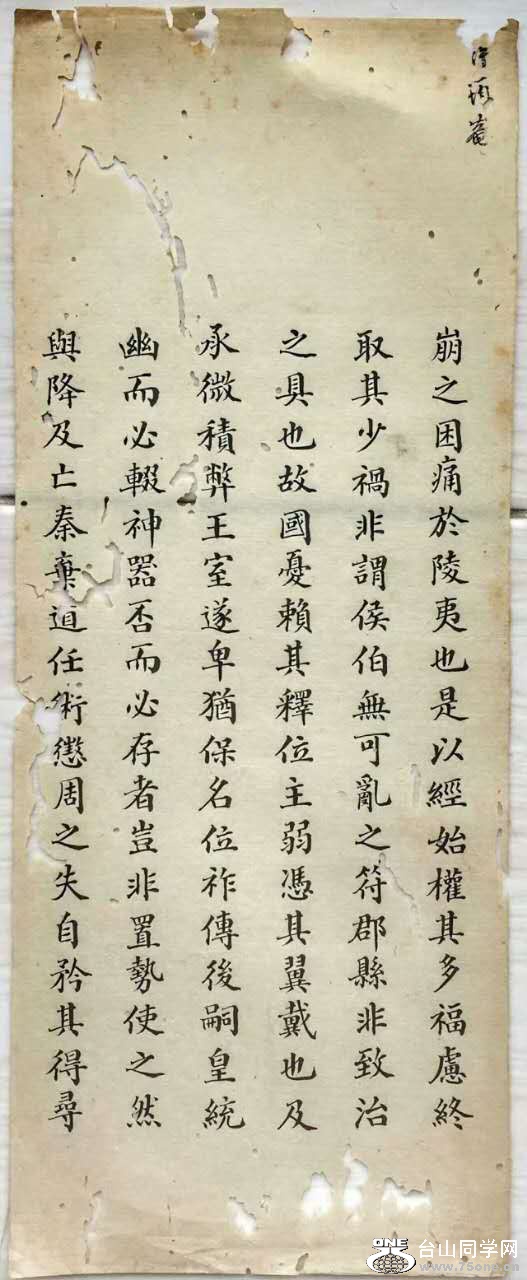 崩之困痛於陵夷也是以經始權其多福慮終
取其少禍非謂侯伯無可亂之符郡縣非致治
之具也故國憂賴其釋位主弱憑其翼戴也及
承微積弊王室遂卑猶保名位祚傳後嗣皇統
幽而必輟神器否而必存者豈非置勢使之然
與降及亡秦棄道任術懲周之失自矜其得尋
ONE
台山同学网
www.75one.cn